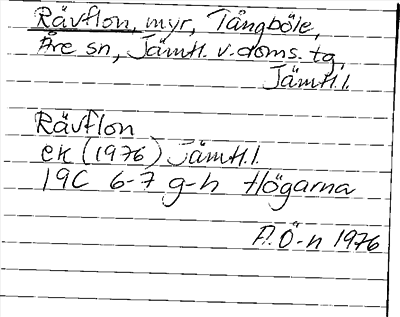 Rävflon, myr, Tångböle,
Åre sn, Jämtl. v. doms. tg,
Jämtl. l.
Rävflon
ek (1976) Jämtl. l.
19C 6-7 g-h Högarna
A.Ö-n 1976